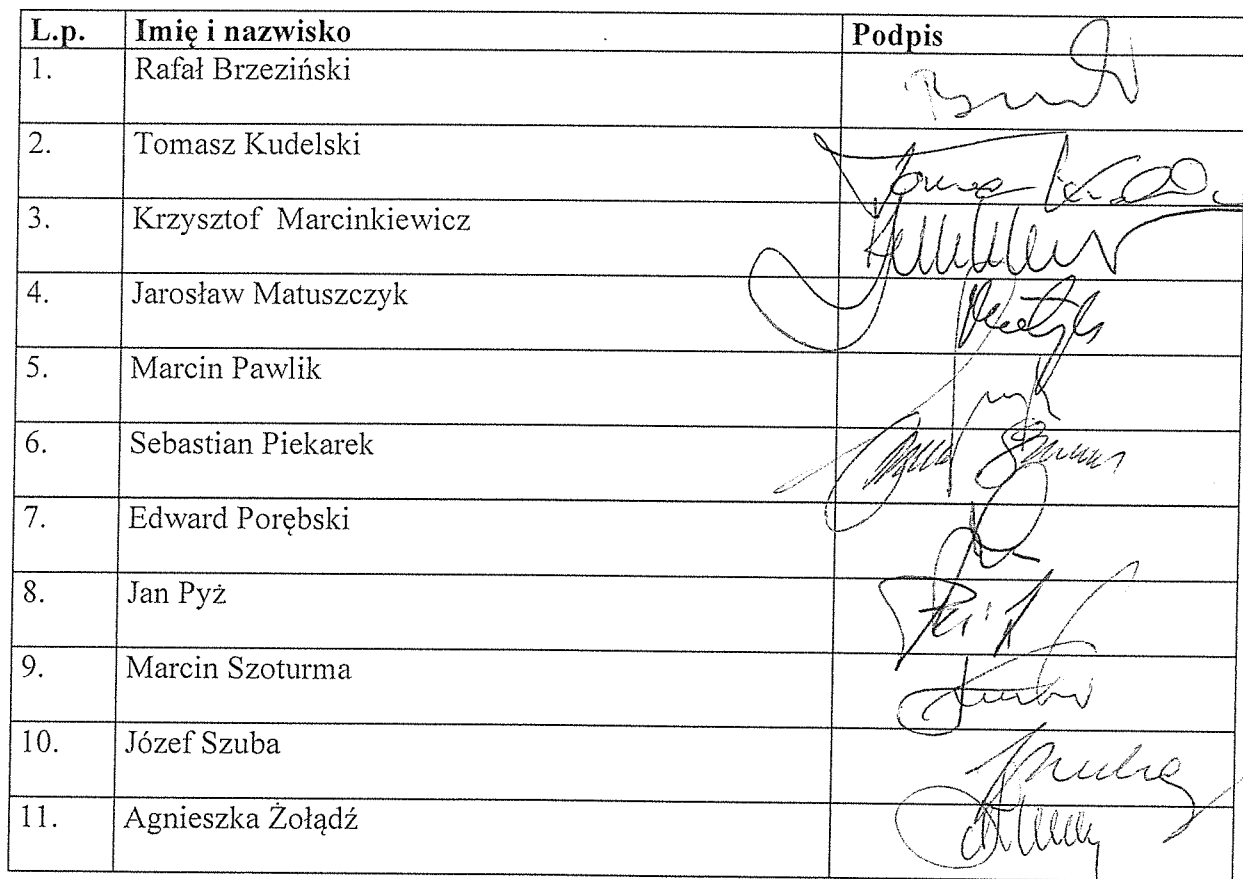 L.p. Imię i nazwisko Podpis
1. Rafał Brzeziński
2. Tomasz Kudelski
3. Krzysztof Marcinkiewicz
4. Jarosław Matuszczyk
5. Marcin Pawlik
6. Sebastian Piekarek
7. Edward Porębski
8. Jan Pyż
9. Marcin Szoturma
10. Józef Szuba
11. Agnieszka Żołądź